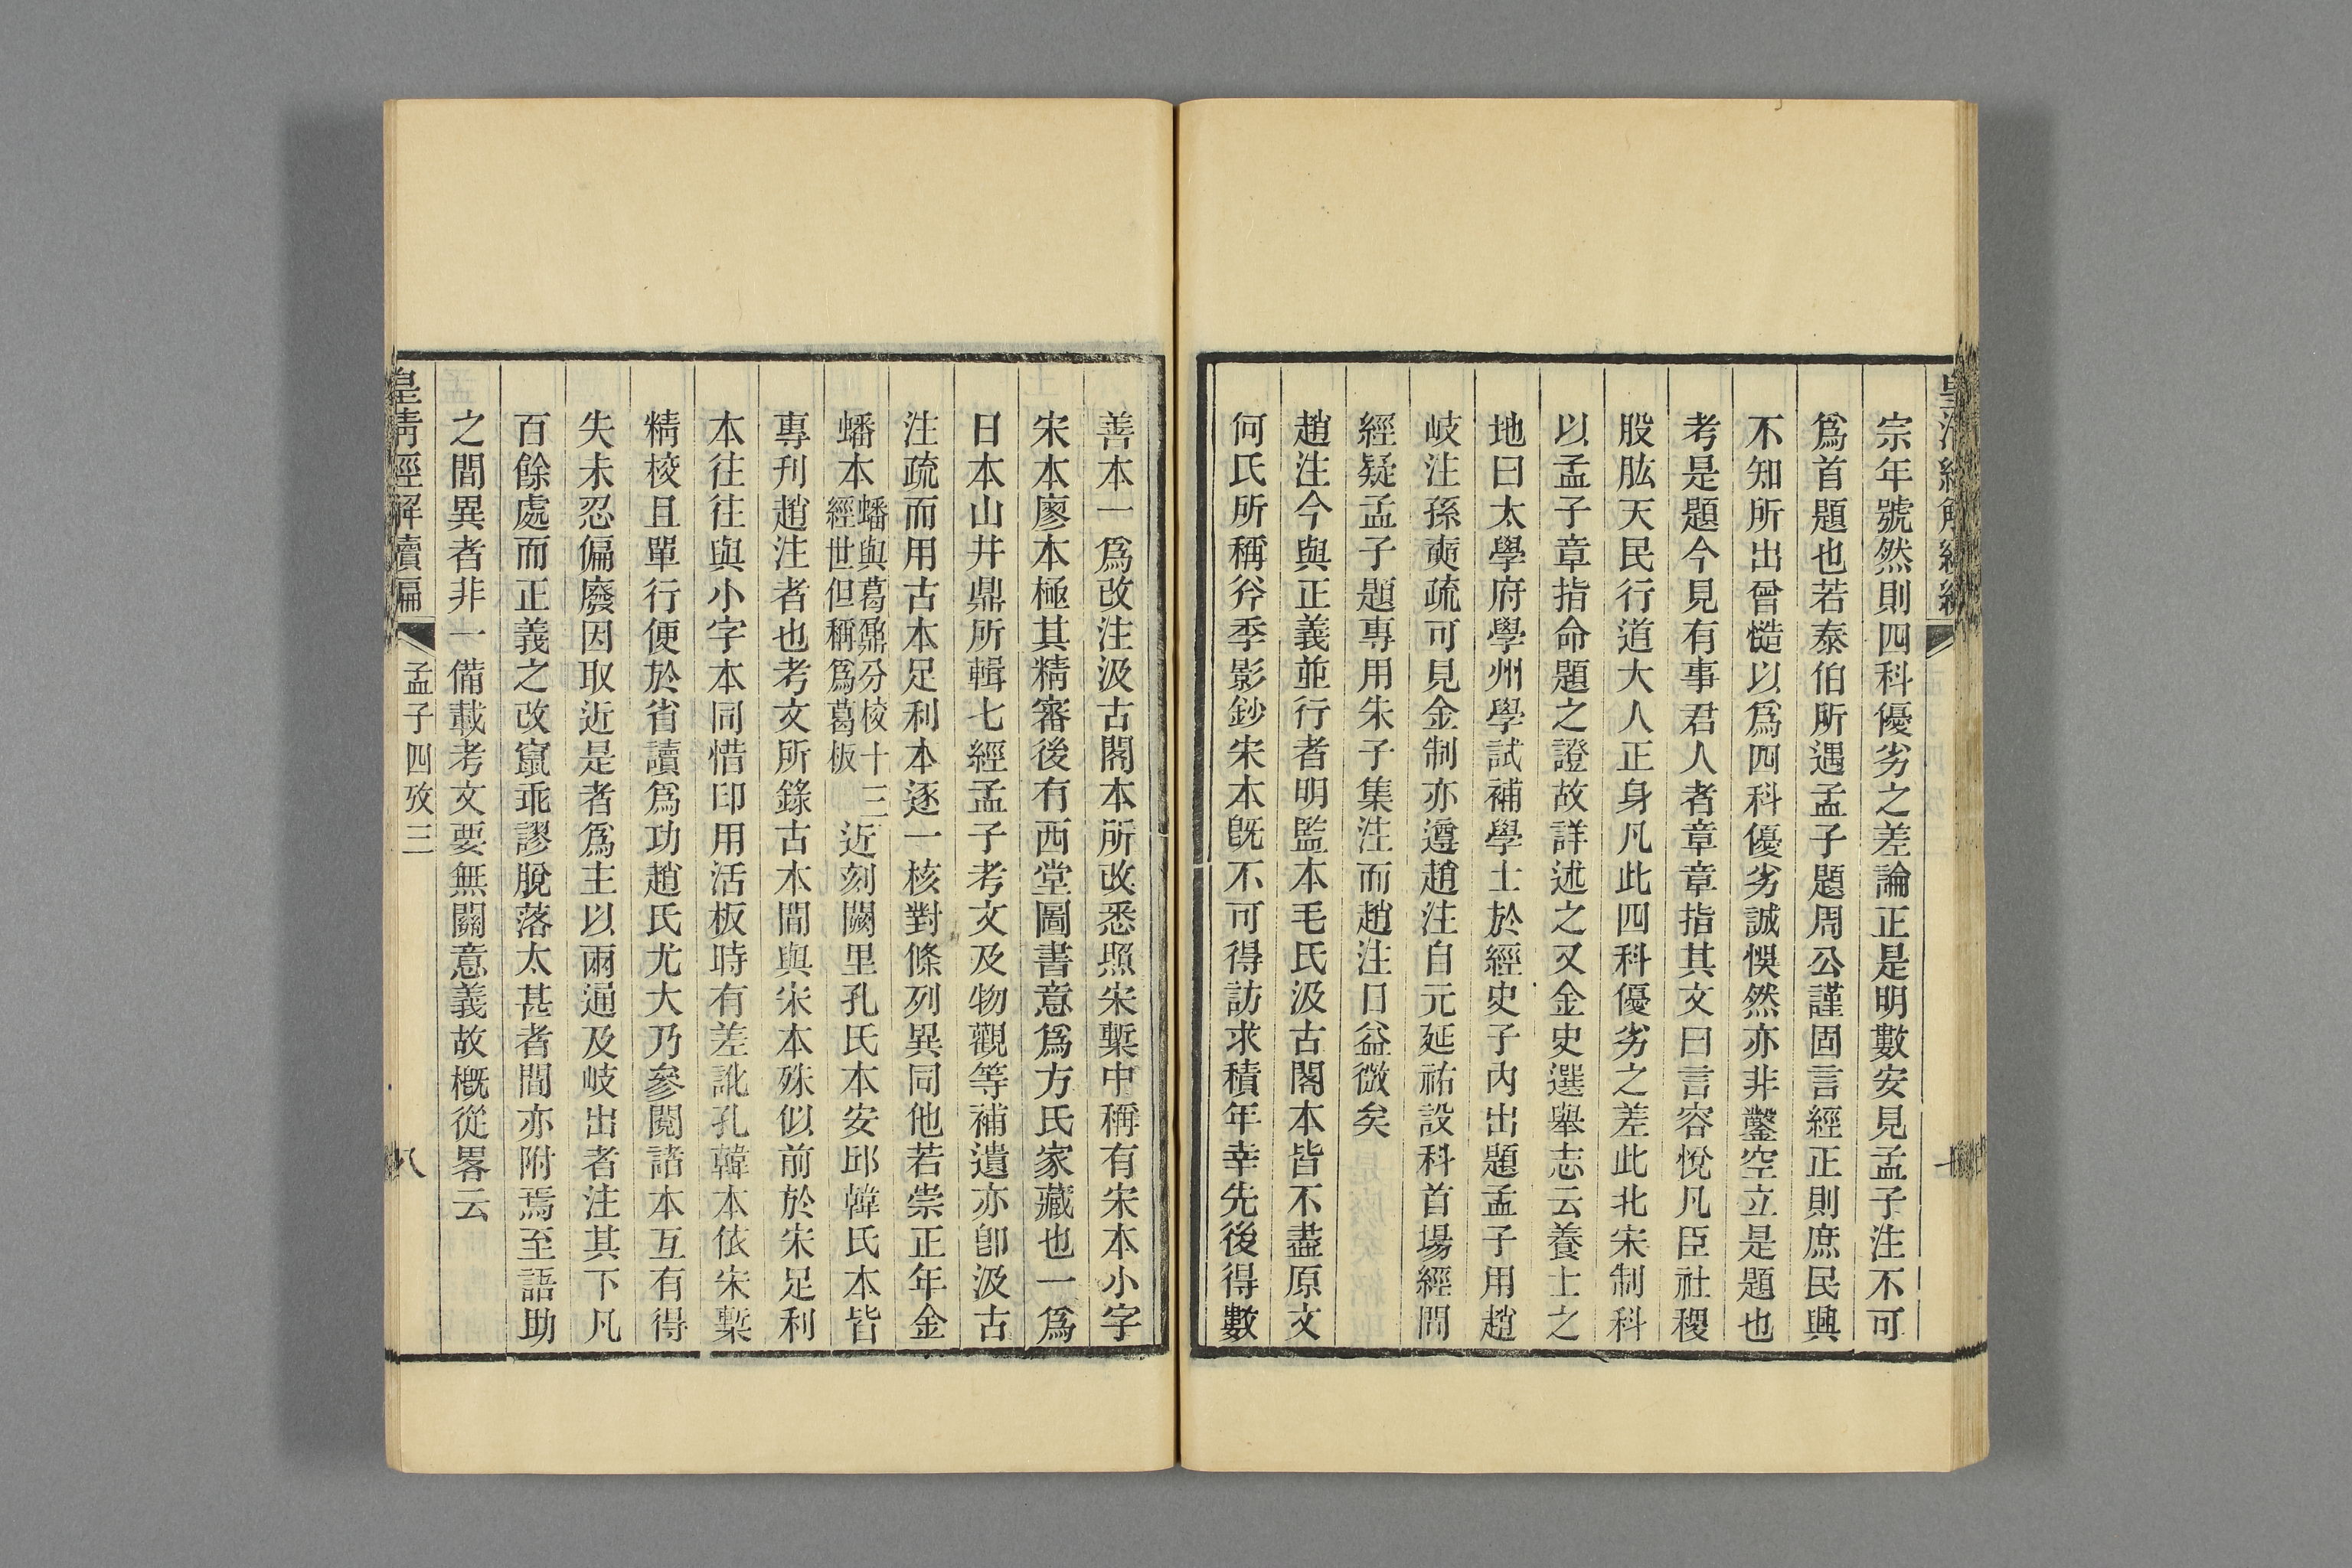 宗年號然則四科優劣之差論正是明數安見孟子注不可
爲首題也若泰伯所遇孟子題周公謹固言經正則庶民興
不知所出曾慥以爲四科優劣誠悞然亦非鑿空立是題也
考是題今見有事君人者章章指其文曰言容悅凡臣社稷
股肱天民行道大人正身凡此四科優劣之差此北宋制科
以孟子章指命題之證故詳述之又金史選舉志云養士之
地曰太學府學州學試補學士於經史子內出題孟子用趙
岐注孫奭疏可見金制亦遵趙注自元延祐設科首場經問
經疑孟子題專用朱子集注而趙注日益微矣
趙注今與正義並行者明監本毛氏汲古閣本皆不盡原文
何氏所稱斧季影鈔宋本既不可得訪求積年幸先後得數
善本一爲改注汲古閣本所改悉照宋槧中稱有宋本小字
宋本廖本極其精審後有西堂圖書意爲方氏家藏也一爲
日本山井鼎所輯七經孟子考文及物觀等補遺亦卽汲古
注疏而用古本足利本逐一核對條列異同他若崇正年金
蟠本蟠與葛鼐分校十三經世但稱爲葛板近刻闕里孔氏本安邱韓氏本皆
專刋趙注者也考文所錄古本間與宋本殊似前於宋足利
本往往與小字本同惜印用活板時有差訛孔韓本依宋槧
精校且單行便於省讀爲功趙氏尤大乃參閱諸本互有得
失未忍偏廢因取近是者爲主以兩通及岐出者注其下凡
百餘處而正義之改竄乖謬脫落太甚者間亦附焉至語助
之間異者非一備載考文要無關意義故槪從畧云
皇清經解續編
孟子四攷三
八